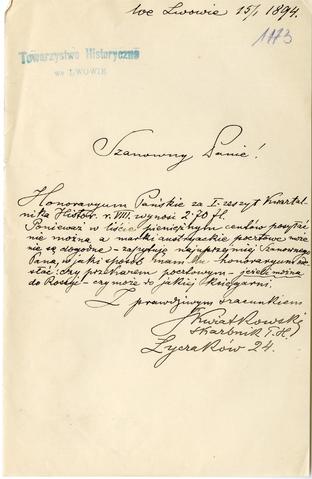 we Lwowie 15/1 1894.
1173
Towarzystwo Historyczne
we LWOWIE
Szanowny Panie!
Honoraryum Pańskie za I. zeszyt Kwartal-
nika Histor. r. VIII. wynosi 2.70 fl.
Ponieważ w liście pieniężnym centów posyłać
nie można a marki austryackie pocztowe może
nie są dogodne – zapytuję najuprzejmiej Szanownego
Pana, w jaki sposób mam honoraryum
słać: czy przekazem pocztowym – jeżeli można
do Rosyi – czy może do jakiej Księgarni.
Z prawdziwym szacunkiem
Kwiatkowski
skarbnik T. H.
Łyczaków 24.